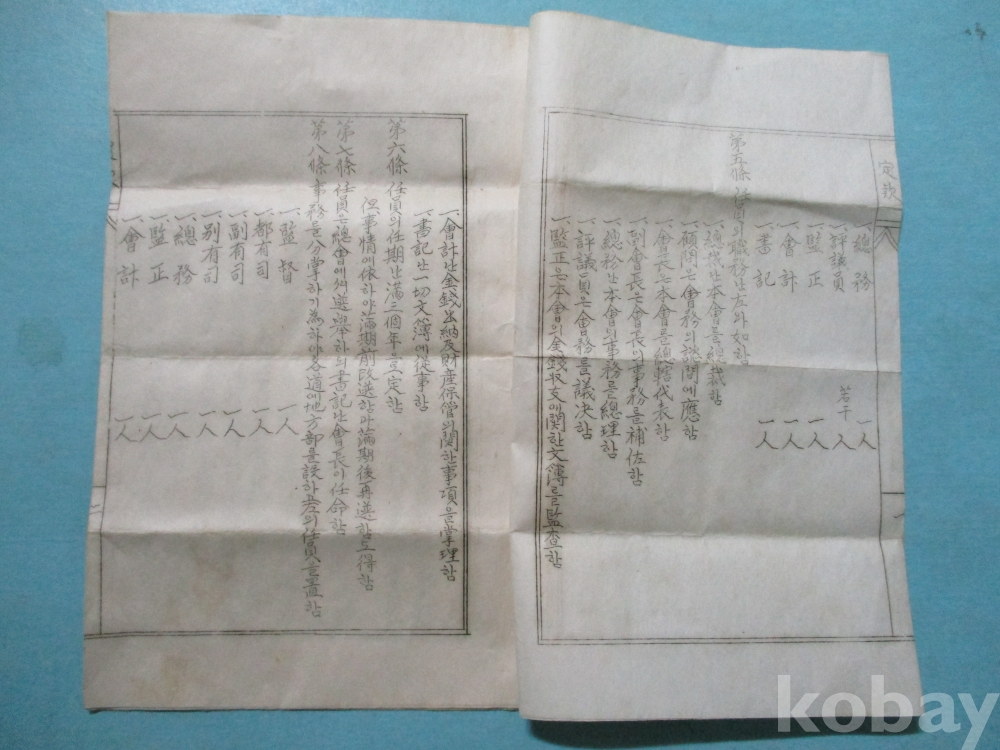 定款
一、總務 一人
一、評議員 若干人
一、監正 一人
一、會計 一人
一、書記 一人
第五條 任員의 職務난 左와 如함
一、總裁난 本會를 總裁함
一、顧問은 會務의 諮問에 應함
一、會長은 本會를 總轄代表함
一、副會長은 會長의 事務를 補佐함
一、總務난 本會의 事務를 總理함
一、評議員은 會務를 議決함
一、監正은 本會의 金錢收支에 關한 文簿를 監査함
一、會計난 金錢出納及財産保管의 關한 事項을 掌理함
一、書記난 一切文簿에 從事함
第六條 任員의 任期난 滿二個年으로 定한
但事情에 依하야 滿期前改選함과 滿期後再選함도 得함
第七條 任員은 總會에서 選擧하되 書記난 會長이 任命함
第八條 事務를 分掌하기 爲하야 各道에 地方部를 設하고 左의 任員을 置함
一、監督 一人
一、都有司 一人
一、副有司 一人
一、別有司 一人
一、總務 一人
一、監正 一人
一、會計 一人
二
kobay